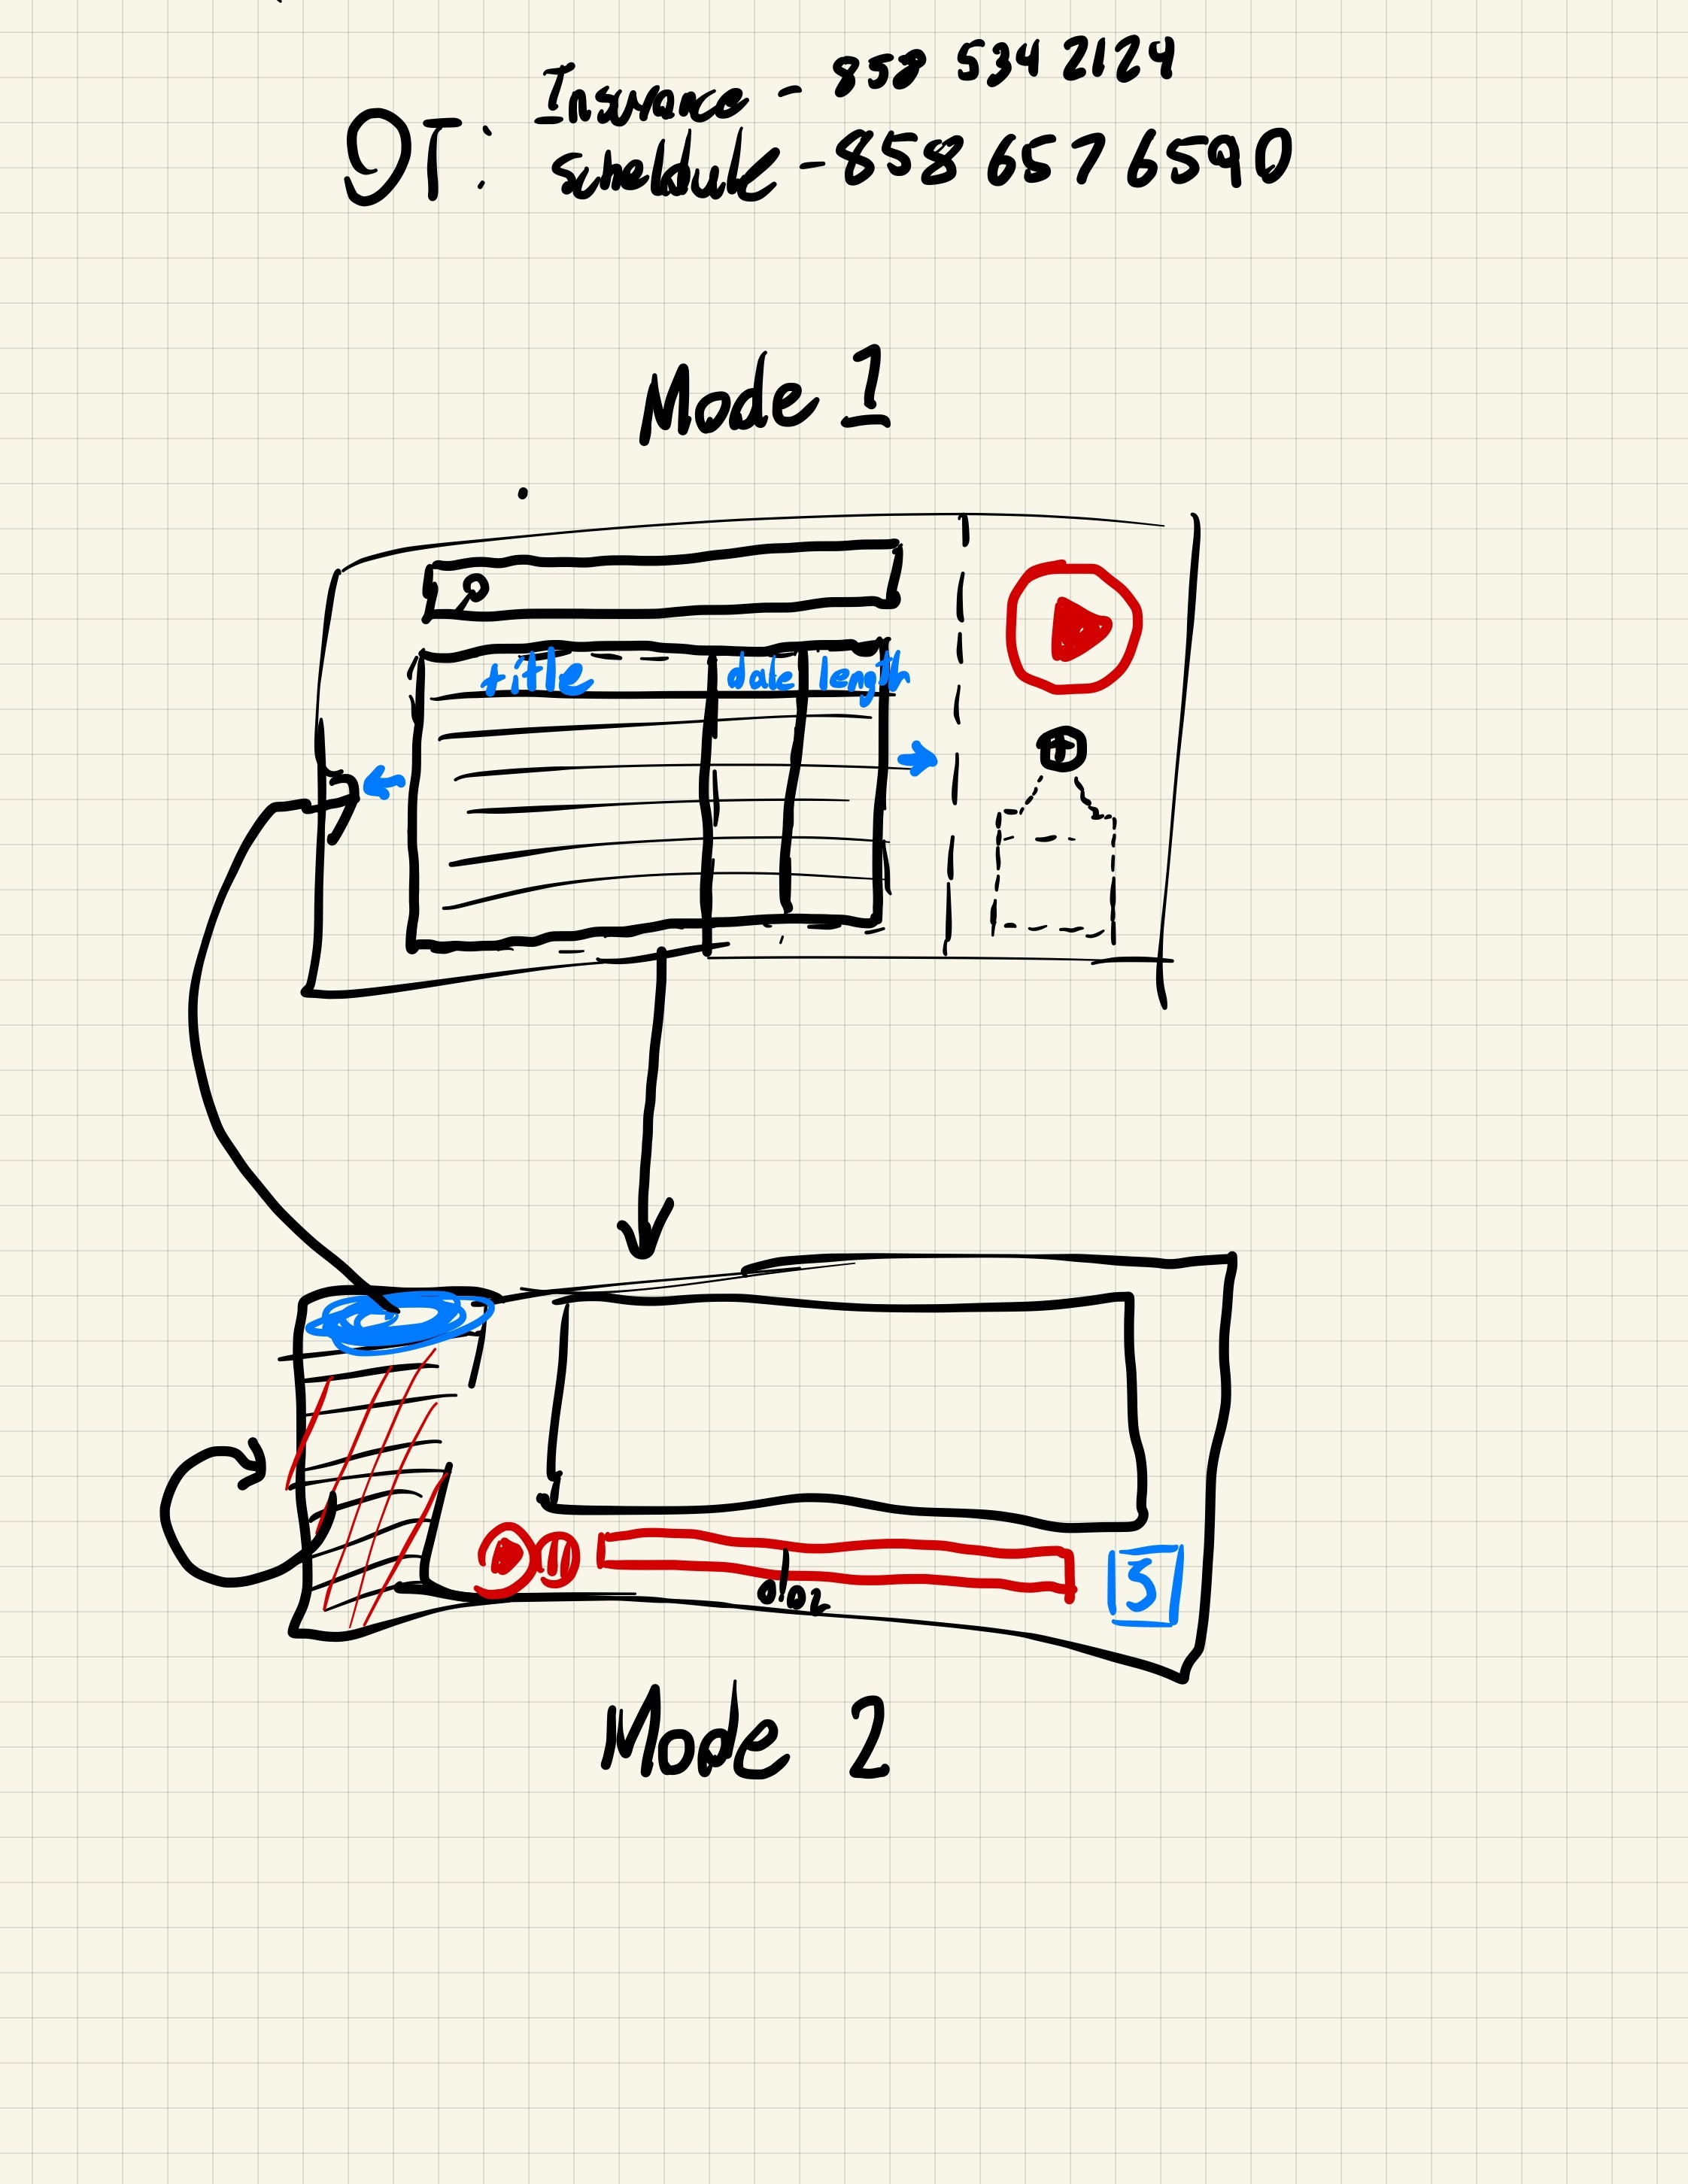 Insurance - 858 534 2124
OT: Scheldule - 858 657 6590
Mode 1
title date length
0:02
3
Mode 2